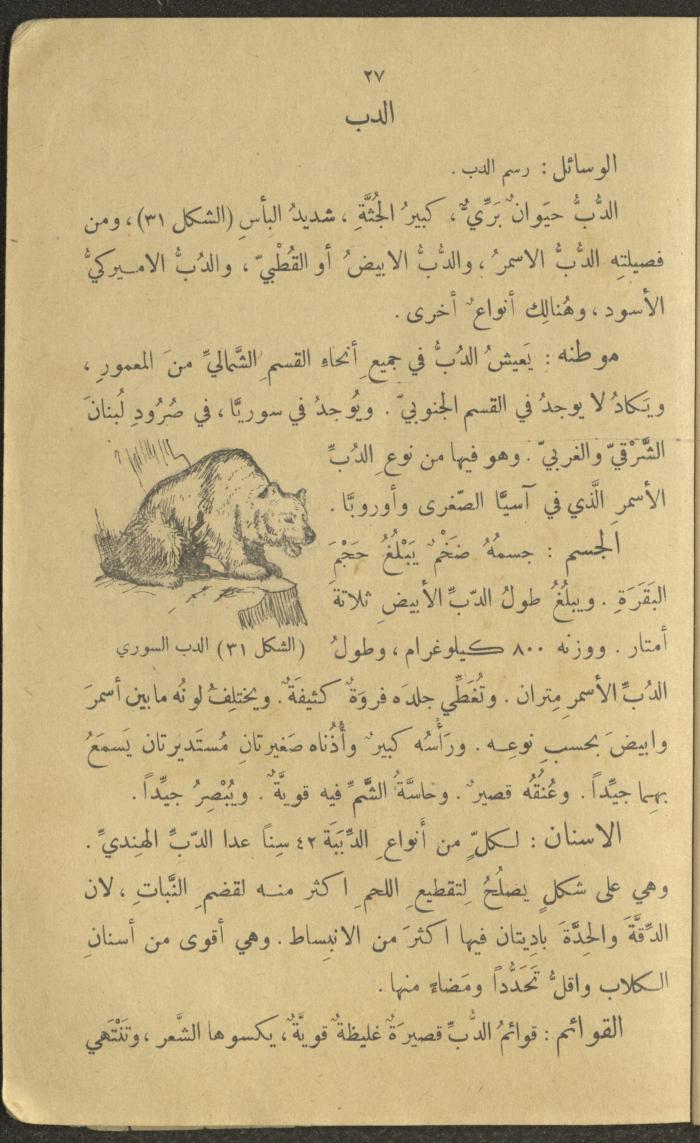 ٢٧
الدب
الوسائل : رسم الدب .
الدُّبُّ حيَوانٌ بَرِّيٌّ، كبيرُ الجُثَّةِ ، شديدُ البأسِ (الشكل ٣١) ، ومن
فصيلتِه الدُّبُّ الاسمرُ ، والدُّبُّ الابيضُ أو القُطْبيّ ، والدُبُّ الاميركيُّ
الأسود ، وهُنالِك أنواعٌ أخرى .
موطنه : يَعيشُ الدُبُّ في جميعِ أنحاءِ القسمِ الشَّماليِّ منَ المعمورِ ،
ويَكادُ لا يوجدُ في القسم الجنوبيّ . ويُوجدُ في سوريَّا ، في صُرُودِ لُبنانَ
الشَّرْقيّ والغربيّ . وهو فيها من نوعِ الدُبِّ
الأسمرِ الَّذي في آسيَّا الصّغرى وأوروبَّا .
الجسم : جسمُهُ ضَخْمٌ يَبْلُغُ حَجْمَ
البَقَرَةِ . ويبلُغُ طولُ الدّبِّ الأبيضِ ثلاثةَ
أمتار . ووزنه ٨٠٠ كيلوغرام ، وطولُ
(الشكل ٣١) الدب السوري
الدُبِّ الأسمرِ مِتران . وتُغَطِّي جلدَه فروَةٌ كثيفَةٌ . ويختلِفُ لونُه ما بين أسمرَ
وابيضَ بحسبِ نوعِه . ورَأْسُه كبيرٌ وأُذُناه صَغيرتانِ مُستَديرتان يَسمَعُ
بهِما جيِّداً . وعُنُقُه قصيرٌ . وحاسَّةُ الشَّمِّ فيه قويَّةٌ . ويُبْصِرُ جيِّداً .
الاسنان : لكلّ من أنواعِ الدِّبَبَة ٤٢ سِنّاً عدا الدّبِّ الهِنديِّ .
وهي على شكلٍ يصلُحُ لِتقطيعِ اللحمِ اكثر منه لقضمِ النَّباتِ ، لان
الدِّقَّةَ والحِدَّةَ بادِيتان فيها اكثرَ من الانبِساط . وهي أقوى من أسنانِ
الكلاب واقلُّ تَحَدُّداً ومَضاءً منها .
القوائم : قوائمُ الدُّبِّ قصيرَةٌ غليظةٌ قويَّةٌ ، يكسوها الشَّعر ، وتَنْتَهي